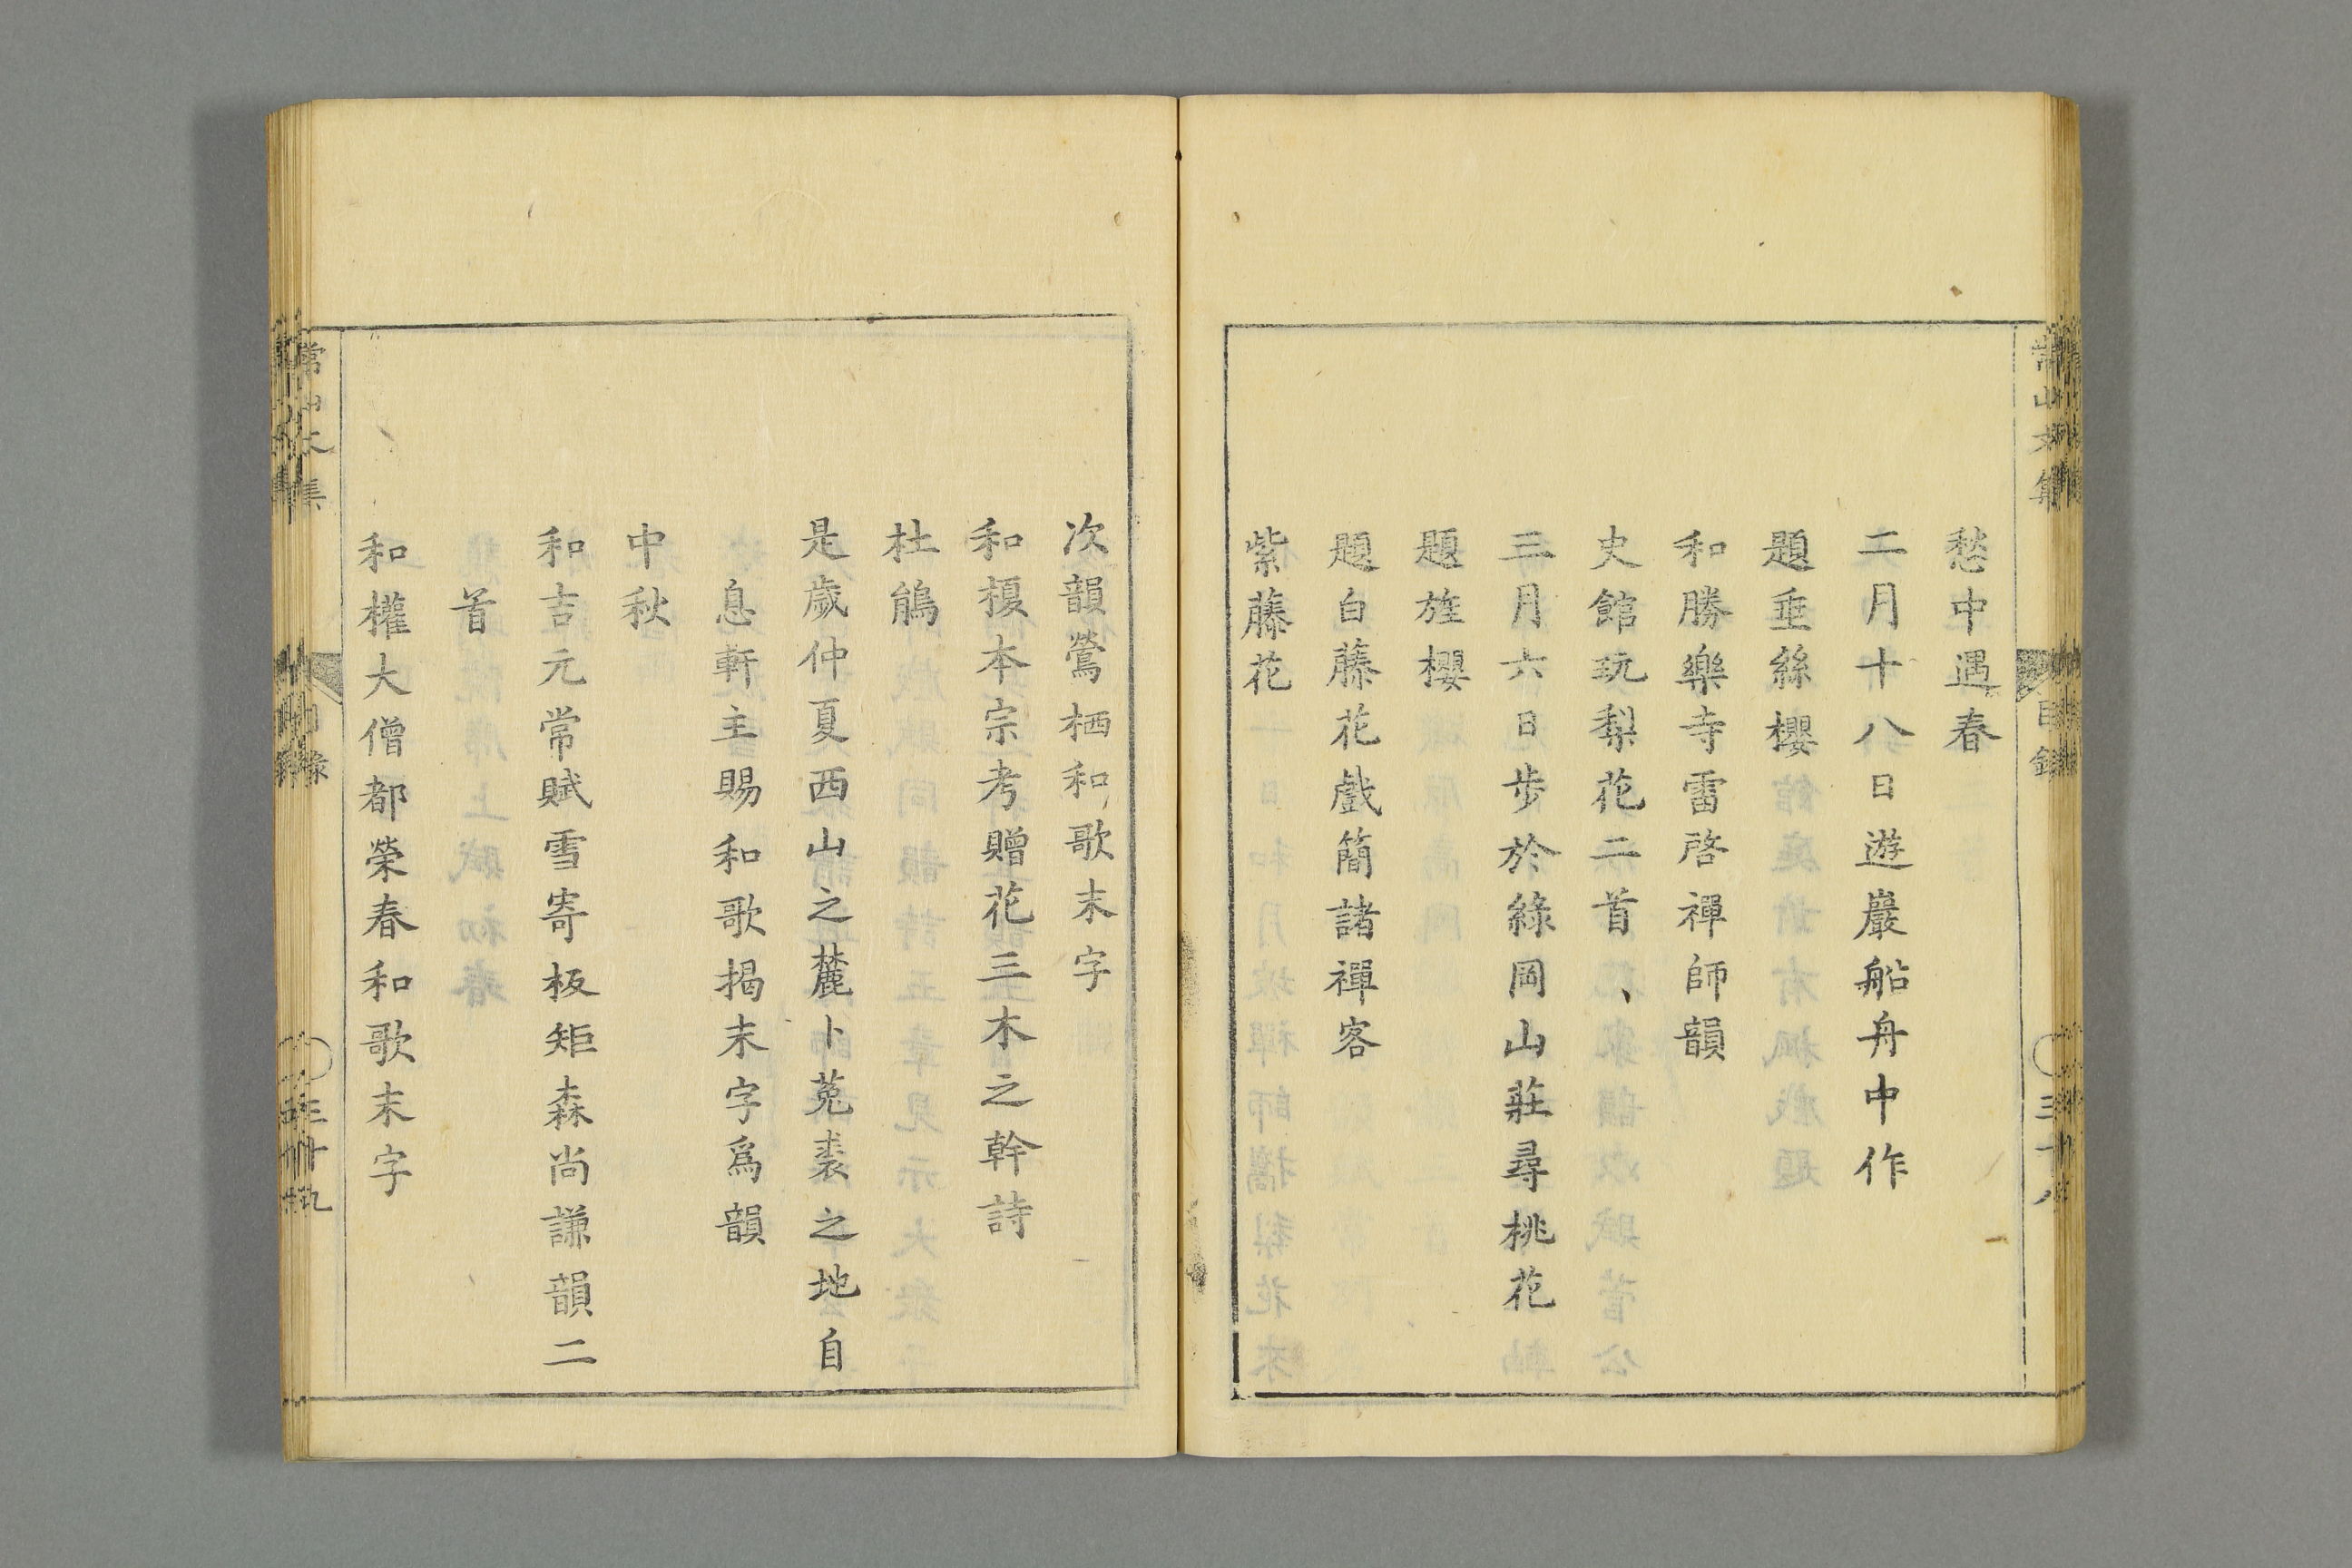 常山文集
目録
三十八
愁中遇春
二月十八日遊巖船舟中作
題垂絲櫻
和勝樂寺雷啓禪師韻
史館玩梨花二首、
三月六日步於綠岡山莊尋桃花
題旌櫻
題白藤花戲簡諸禪客
紫藤花
次韻鶯栖和歌末字
和榎本宗考贈花三木之幹詩
杜鵑
是歲仲夏西山之麓卜菟裘之地自
息軒主賜和歌揭末字爲韻
中秋
和吉元常賦雪寄板矩森尚謙韻二
首
和權大僧都榮春和歌末字
常山文集
目錄
三十九